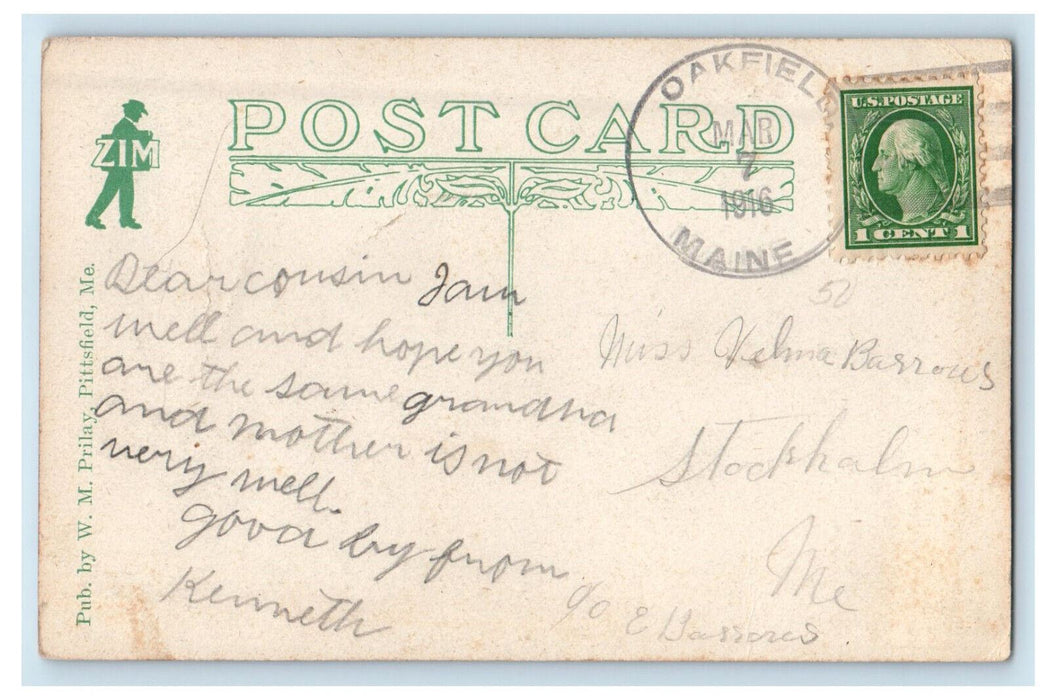 POST CARD
ZIM
OAKFIELD
MAR
7
1916
MAINE
U.S. POSTAGE
1 CENT 1
Pub. by W. M. Prilay, Pittsfield, Me.
Dear cousin I am
well and hope you
are the same grandna
and mother is not
very well.
good by from
Kenneth
50
Miss Velma Barrows
Stockhalm
Me
c/o E Barrows